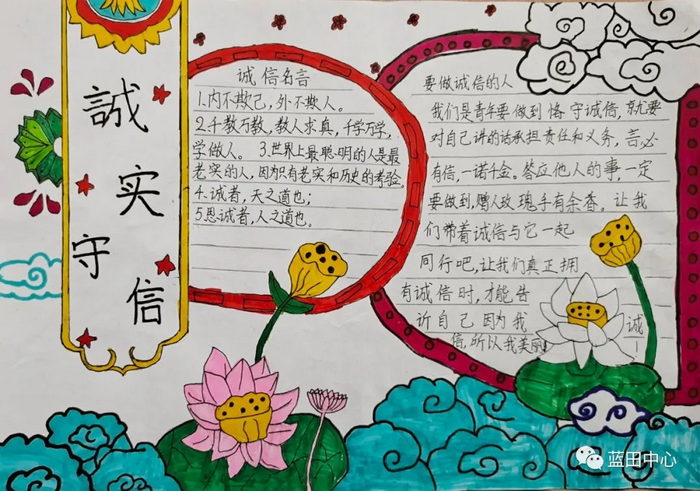 誠实守信
诚信名言
1.内不欺己，外不欺人。
2.千教万教，教人求真，千学万学，
学做人。 3.世界上最聪明的人是最
老实的人，因为只有老实和历史的考验，
4.诚者，天之道也；
5.思诚者，人之道也。
要做诚信的人
我们是青年要做到恪守诚信，就要
对自己讲的话承担责任和义务，言必
有信，一诺千金。答应他人的事，一定
要做到，赠人玫瑰手有余香。让我
们带着诚信与它一起
同行吧，让我们真正拥
有诚信时，才能告
诉自己因为我诚
信，所以我美丽
蓝田中心